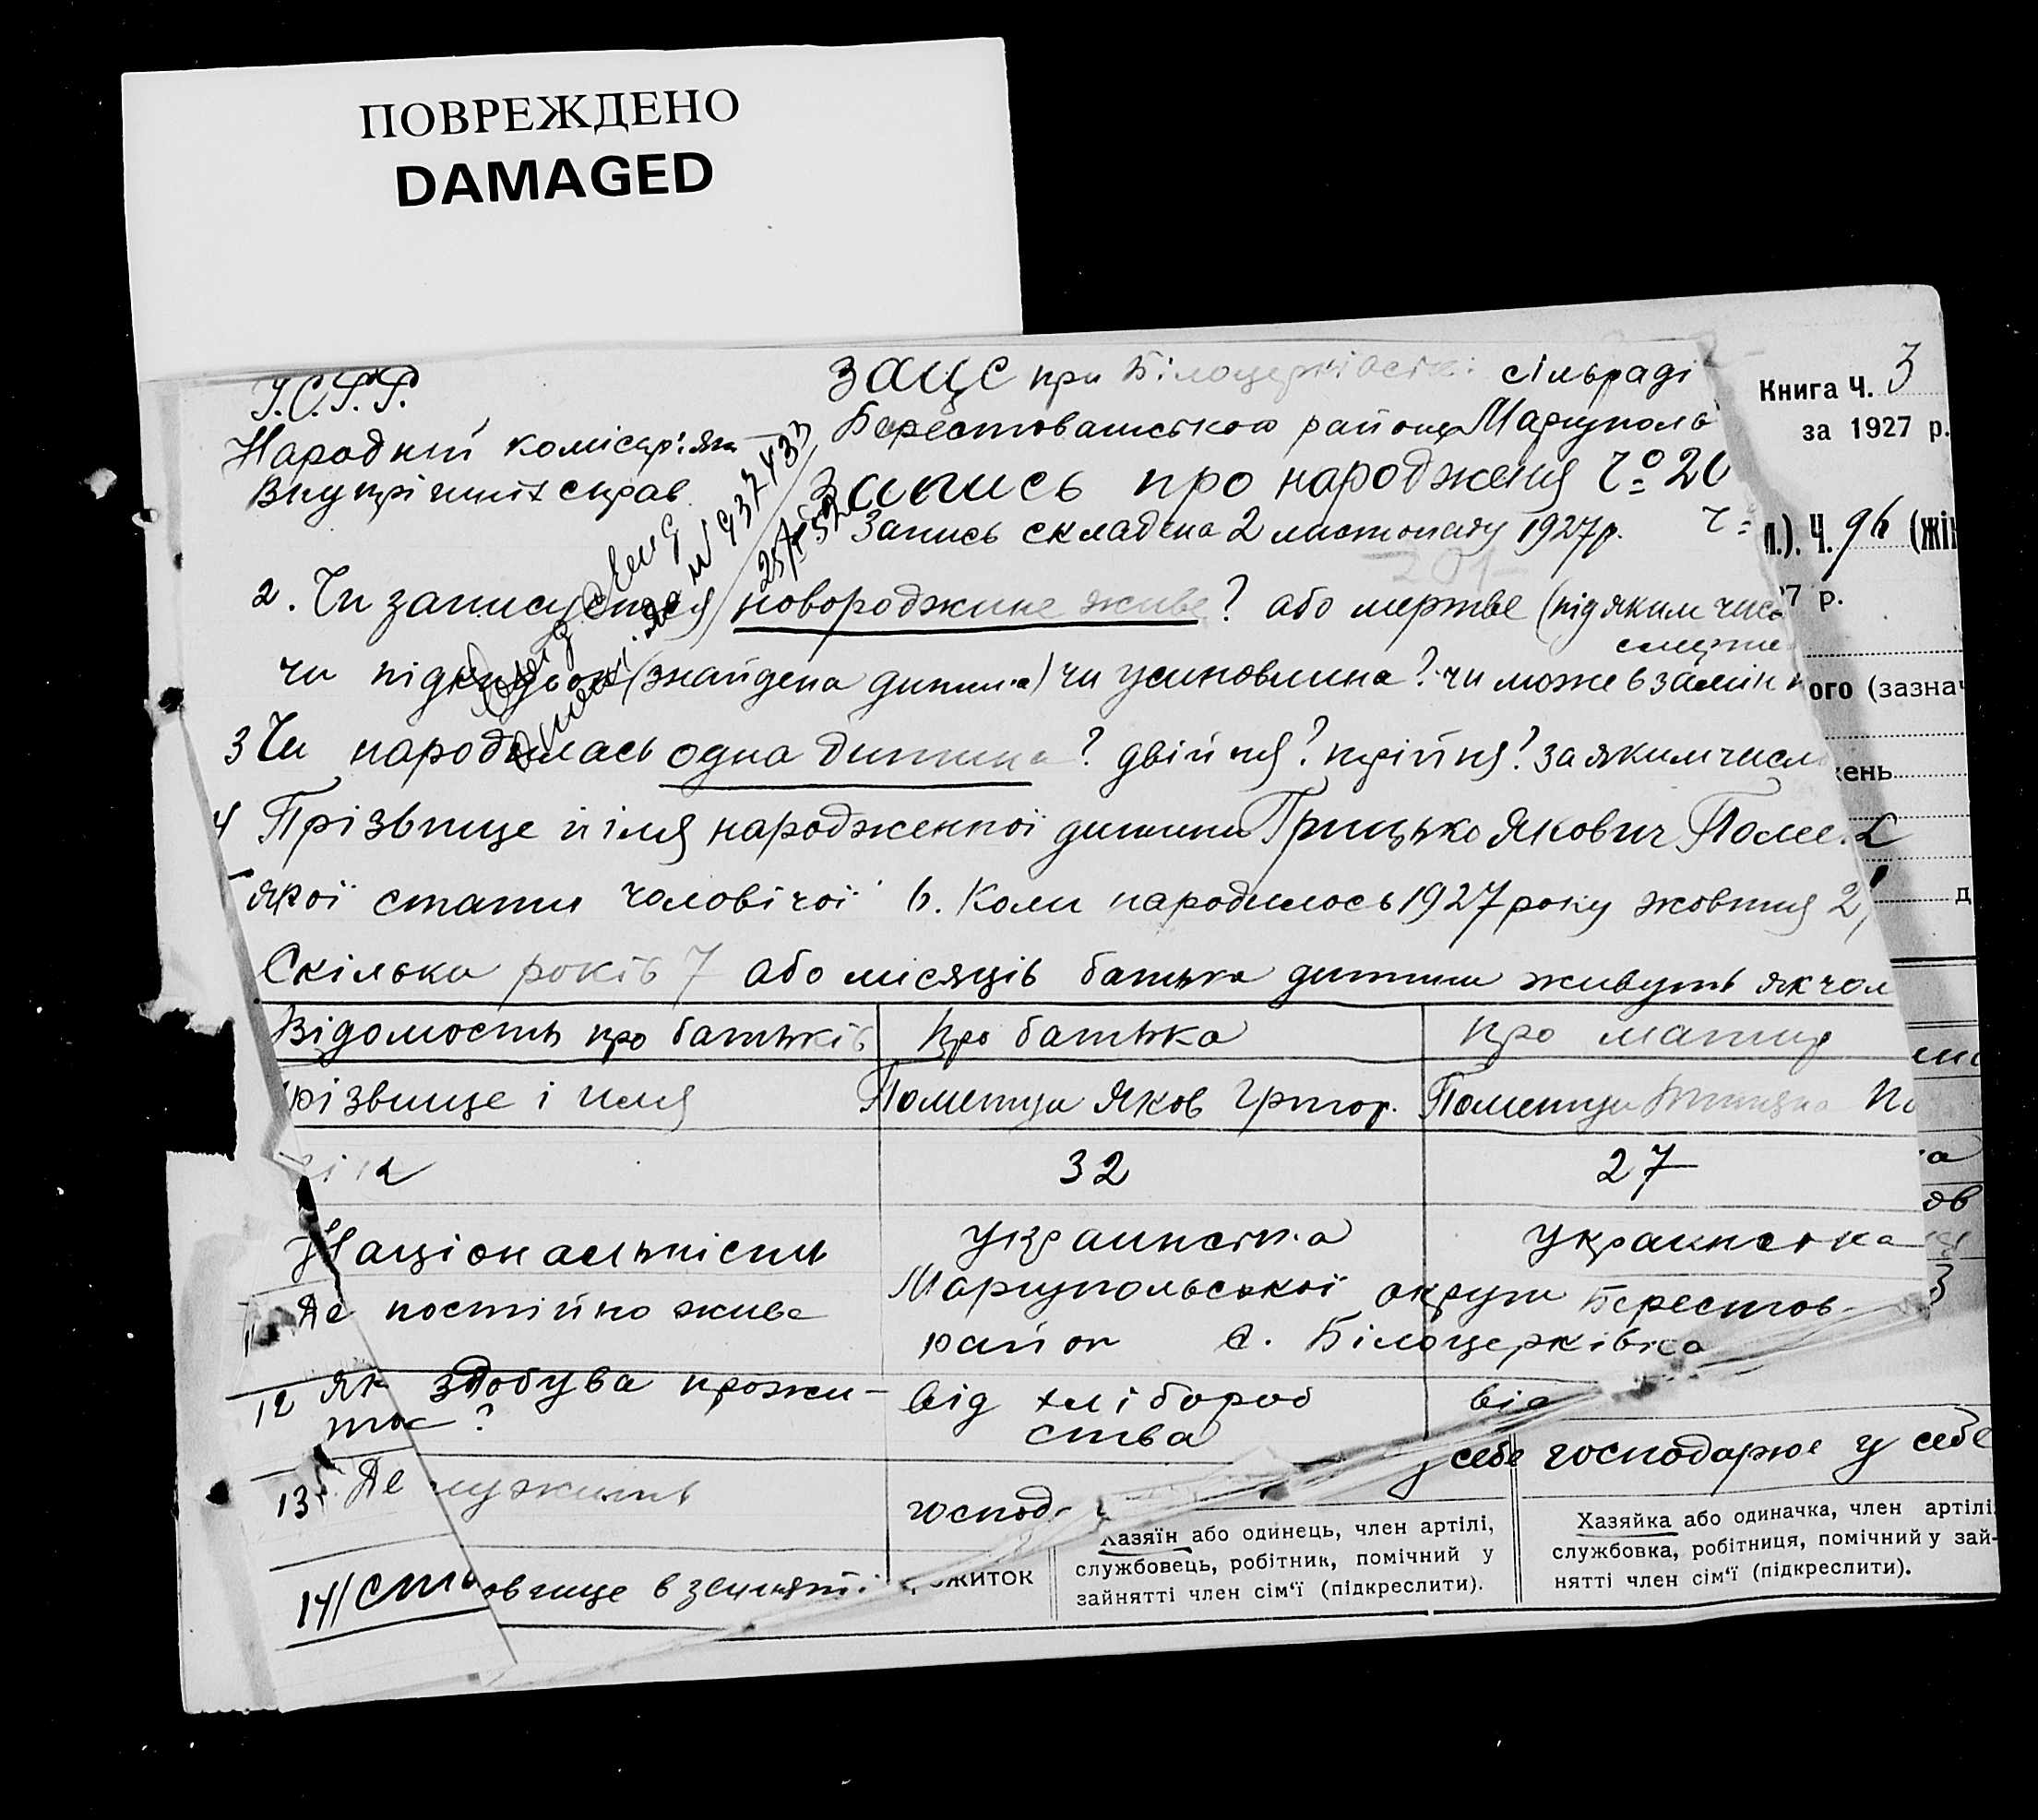 ПОВРЕЖДЕНО
DAMAGED
У.С.Р.Р.
Народний комісарiят
Внутрішніх справ
ЗАЦС при Білоцерківскі сільраді
Берестоватською району Маріуполь
Запись про народженя Ч.º 20
Запись складена 2 листопаду 1927 р.
Книга Ч. 3
за 1927 р.
л.). Ч. 96 (жін
7 р.
N 937433
2. Чи записується новороджине живе? або мертве (під яким чис
смерти
чи підкидьок (знайдена дитина) чи усиновлина? чи може взамін
ого (зазнач
3 Чи народилась одна дитина? двійня? трійня? за яким число
жень
4 Прізвище й імя народженної дитини Грицько Якович Поме
якої стати чоловічої 6. Коли народилось 1927 року жовтня 2
д
Скілька років 7 або місяців батька дитини живуть як чол
Відомость про батьків про батька про матир
різвище і имя Пометун Яков Григор. Пометун
32 27
Національність Украинська Украинська
11 Де постійно живе Маріупольської округи Берестов-
район с. Білоцерківка
12 Як здобува прожи- від хлібороб від
ток? ства
13 Де служить господ у себе господарює у себе
14 становище в занятті
ожиток
Хазяїн або одинець, член артілі,
службовець, робітник, помічний у
зайнятті член сім'ї (підкреслити).
Хазяйка або одиначка, член артілі
службовка, робітниця, помічний у зай-
нятті член сім'ї (підкреслити).